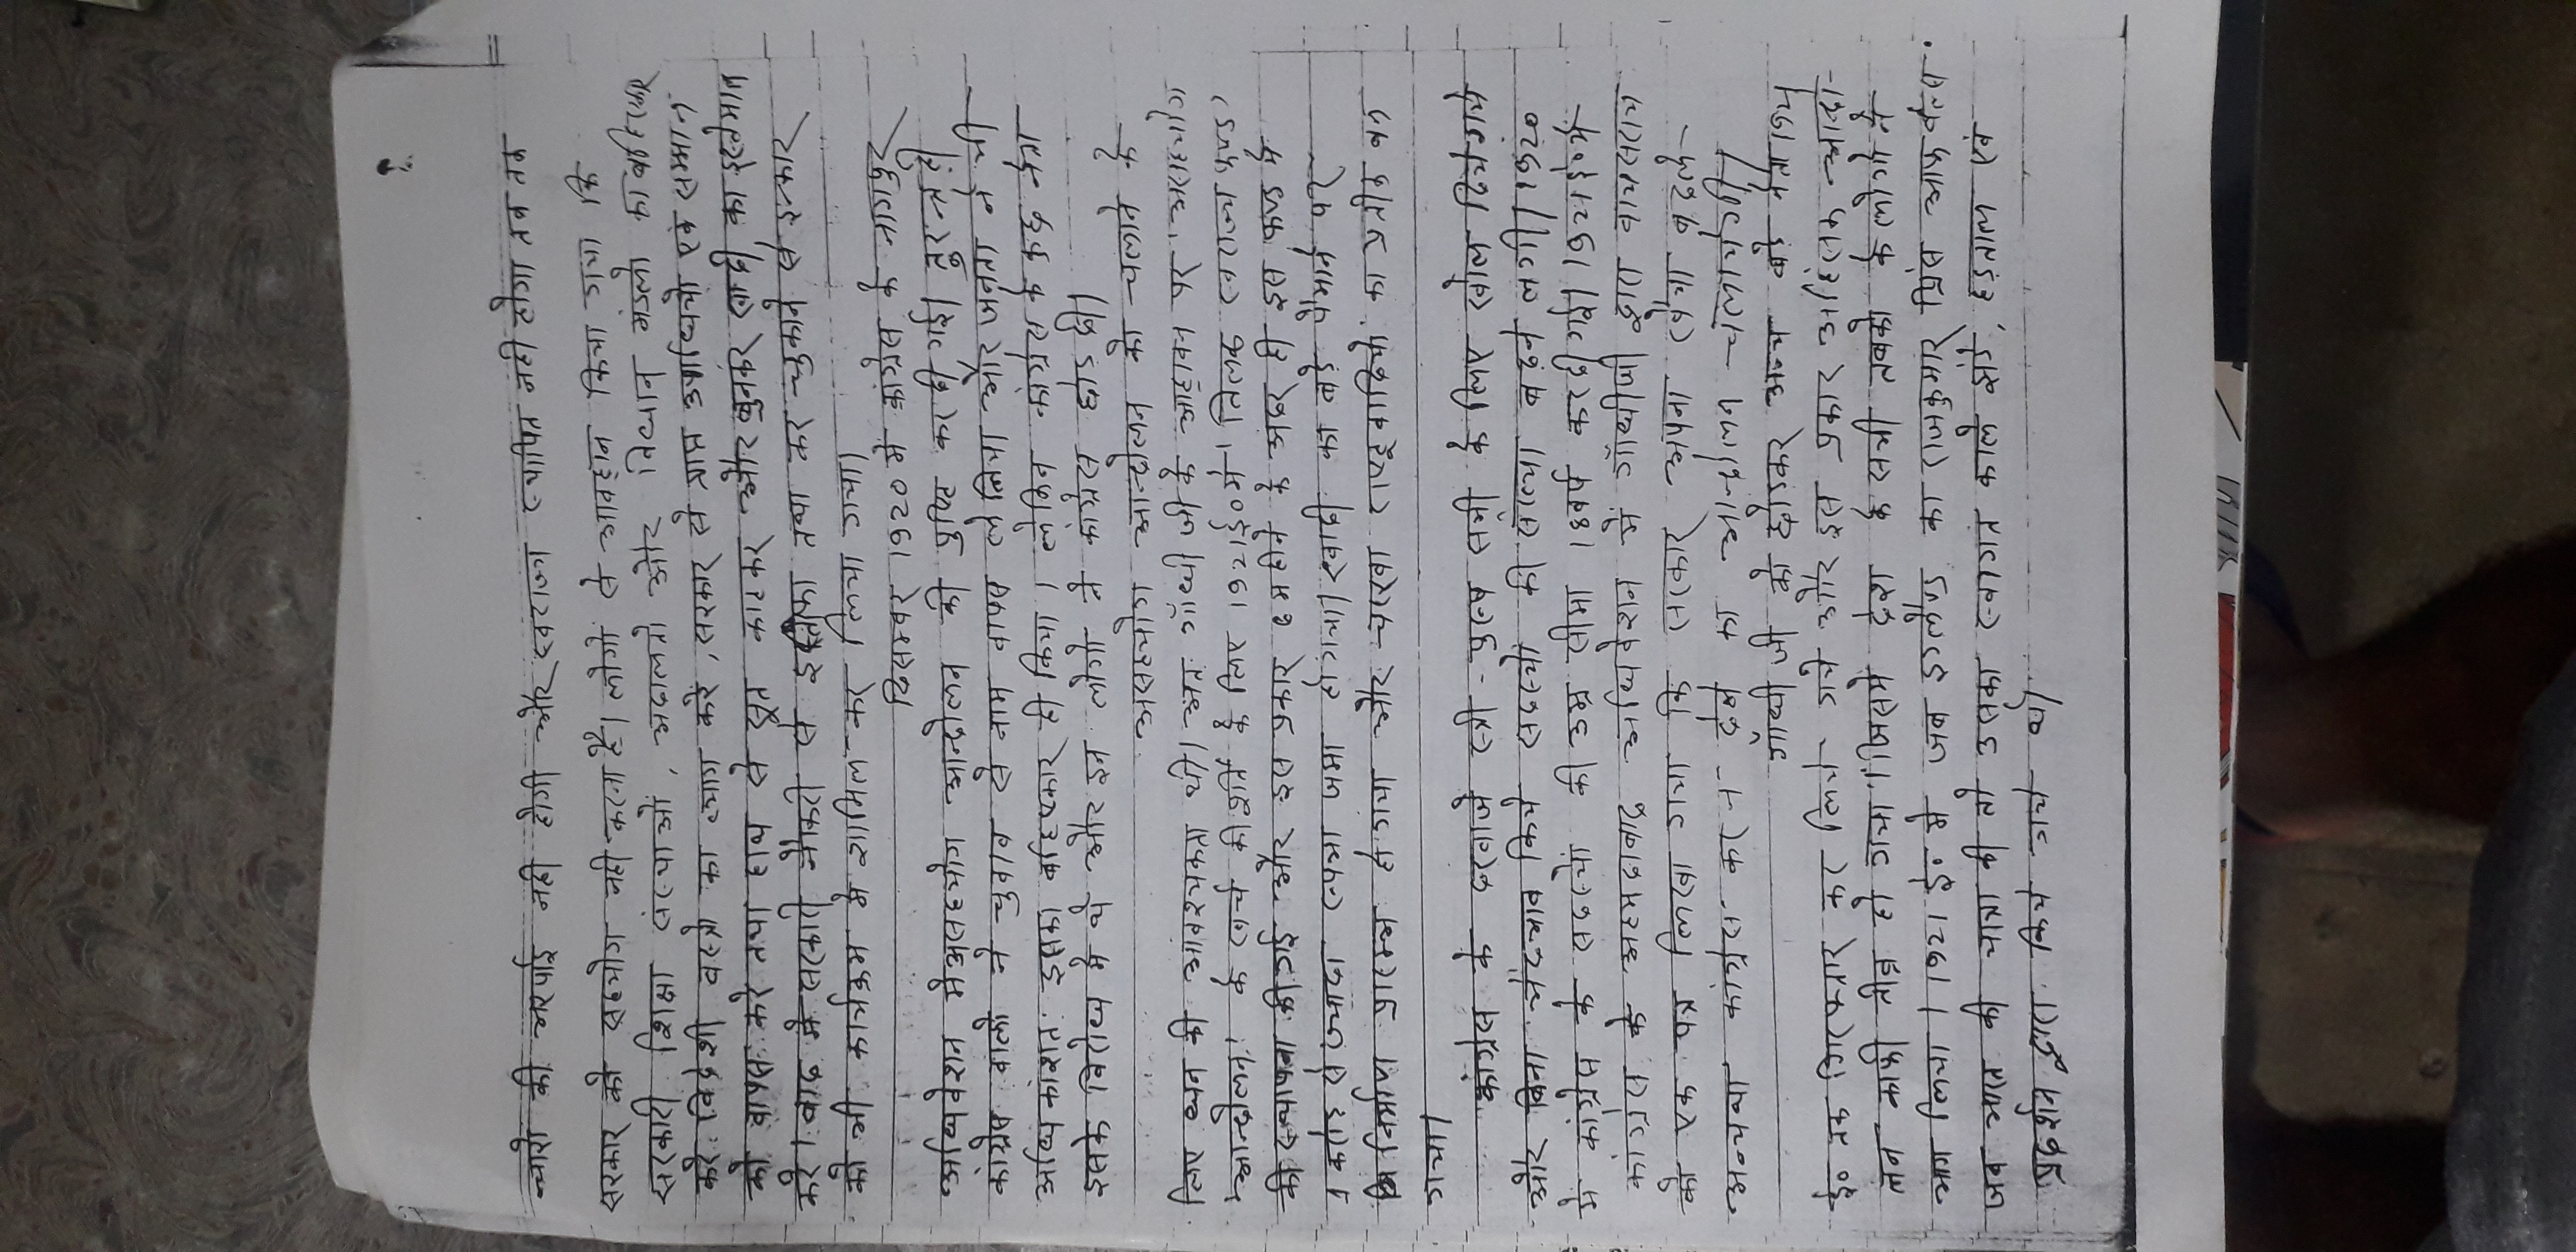 2.
न्यायो की भरपाई नही होगी और स्वराज्य स्थापित नही होगा तब तक
सरकार को सहयोग नही करना है। लोगो से आवाहन किया गया कि
सरकारी शिक्षा संस्थाओं, अदालतो और विधान मंडलो का बहिष्कार
करे: विदेशी वस्त्रो का त्याग करे, सरकार से प्राप्त उपाधियो एवं सम्मान
को वापस: करे तथा हाथ से सूत कातकर और बुनकर खादी का इस्तेमाल
करे। बाद मे सरकारी नौकरी से इस्तीफा तथा कर चुकाने से इन्कार
को भी कार्यक्रम मे शामिल कर लिया गया।
दिसम्बर 1920 मे कांग्रेस के नागपुर
अधिवेशन मे असहयोग आन्दोलन की पुष्टि कर दी गई। तुरन्त ही
कांग्रेस वालो ने चुनाव से नाम वापस ले लिया और जनता ने भी
अधिकांशत: इसका बहिष्कार ही किया। लेकिन कांग्रेस के कुछ नेता
इसके विरोध मे थे और इन लोगो ने कांग्रेस छोड दी।
असहयोग आन्दोलन को चलाने के
लिए धन की आवश्यकता थी। अतः गाँधी जी के आहवान पर 'असहयोग
आन्दोलन' के खर्च की पूर्ति के लिए 1921ई० मे 'तिलक स्वराज्य फण्ड'
की स्थापना की गई और इस प्रकार 6 महीने के अंदर ही इस फण्ड मे
1 करोड़ से ज्यादा रूपया जमा हो गया। खादी का बडे पैमाने पर
निर्माण प्रारम्भ हो गया और चरखा राष्ट्रवादियो का प्रतीक बन
गया।
कांग्रेस के दरवाजे स्त्री-पुरुष सभी के लिए खोल दिये गये
और बिना भेदभाव किये सदस्यो की संख्या बढने लगी। 1920
मे कांग्रेस के सदस्यो की उम्र सीमा 18 वर्ष कर दी गई। 1921ई० मे
कांग्रेस के अहमदाबाद अधिवेशन मे गाँधीजी द्वारा वायसराय
को एक पत्र लिखा गया कि सरकार अपना रवैया बदले-
अन्यथा कांग्रेस कर न देने का आन्दोलन चलायेगी।
गाँधी जी को छोडकर अन्य बडे नेता 1921
ई० तक गिरफ्तार कर लिये गये और इस प्रकार अहिंसक आन्दो-
लन काफी तीव्र हो गया। जिसमे देश के सभी तबको के लोगो ने
भाग लिया। 1921 ई० मे जब इंग्लैण्ड का राजकुमार प्रिंस आफ वेल्स
जब भारत की यात्रा की तो उसका स्वागत काले झंडे, हड़ताल एवं
प्रदर्शन द्वारा किये गये थे।